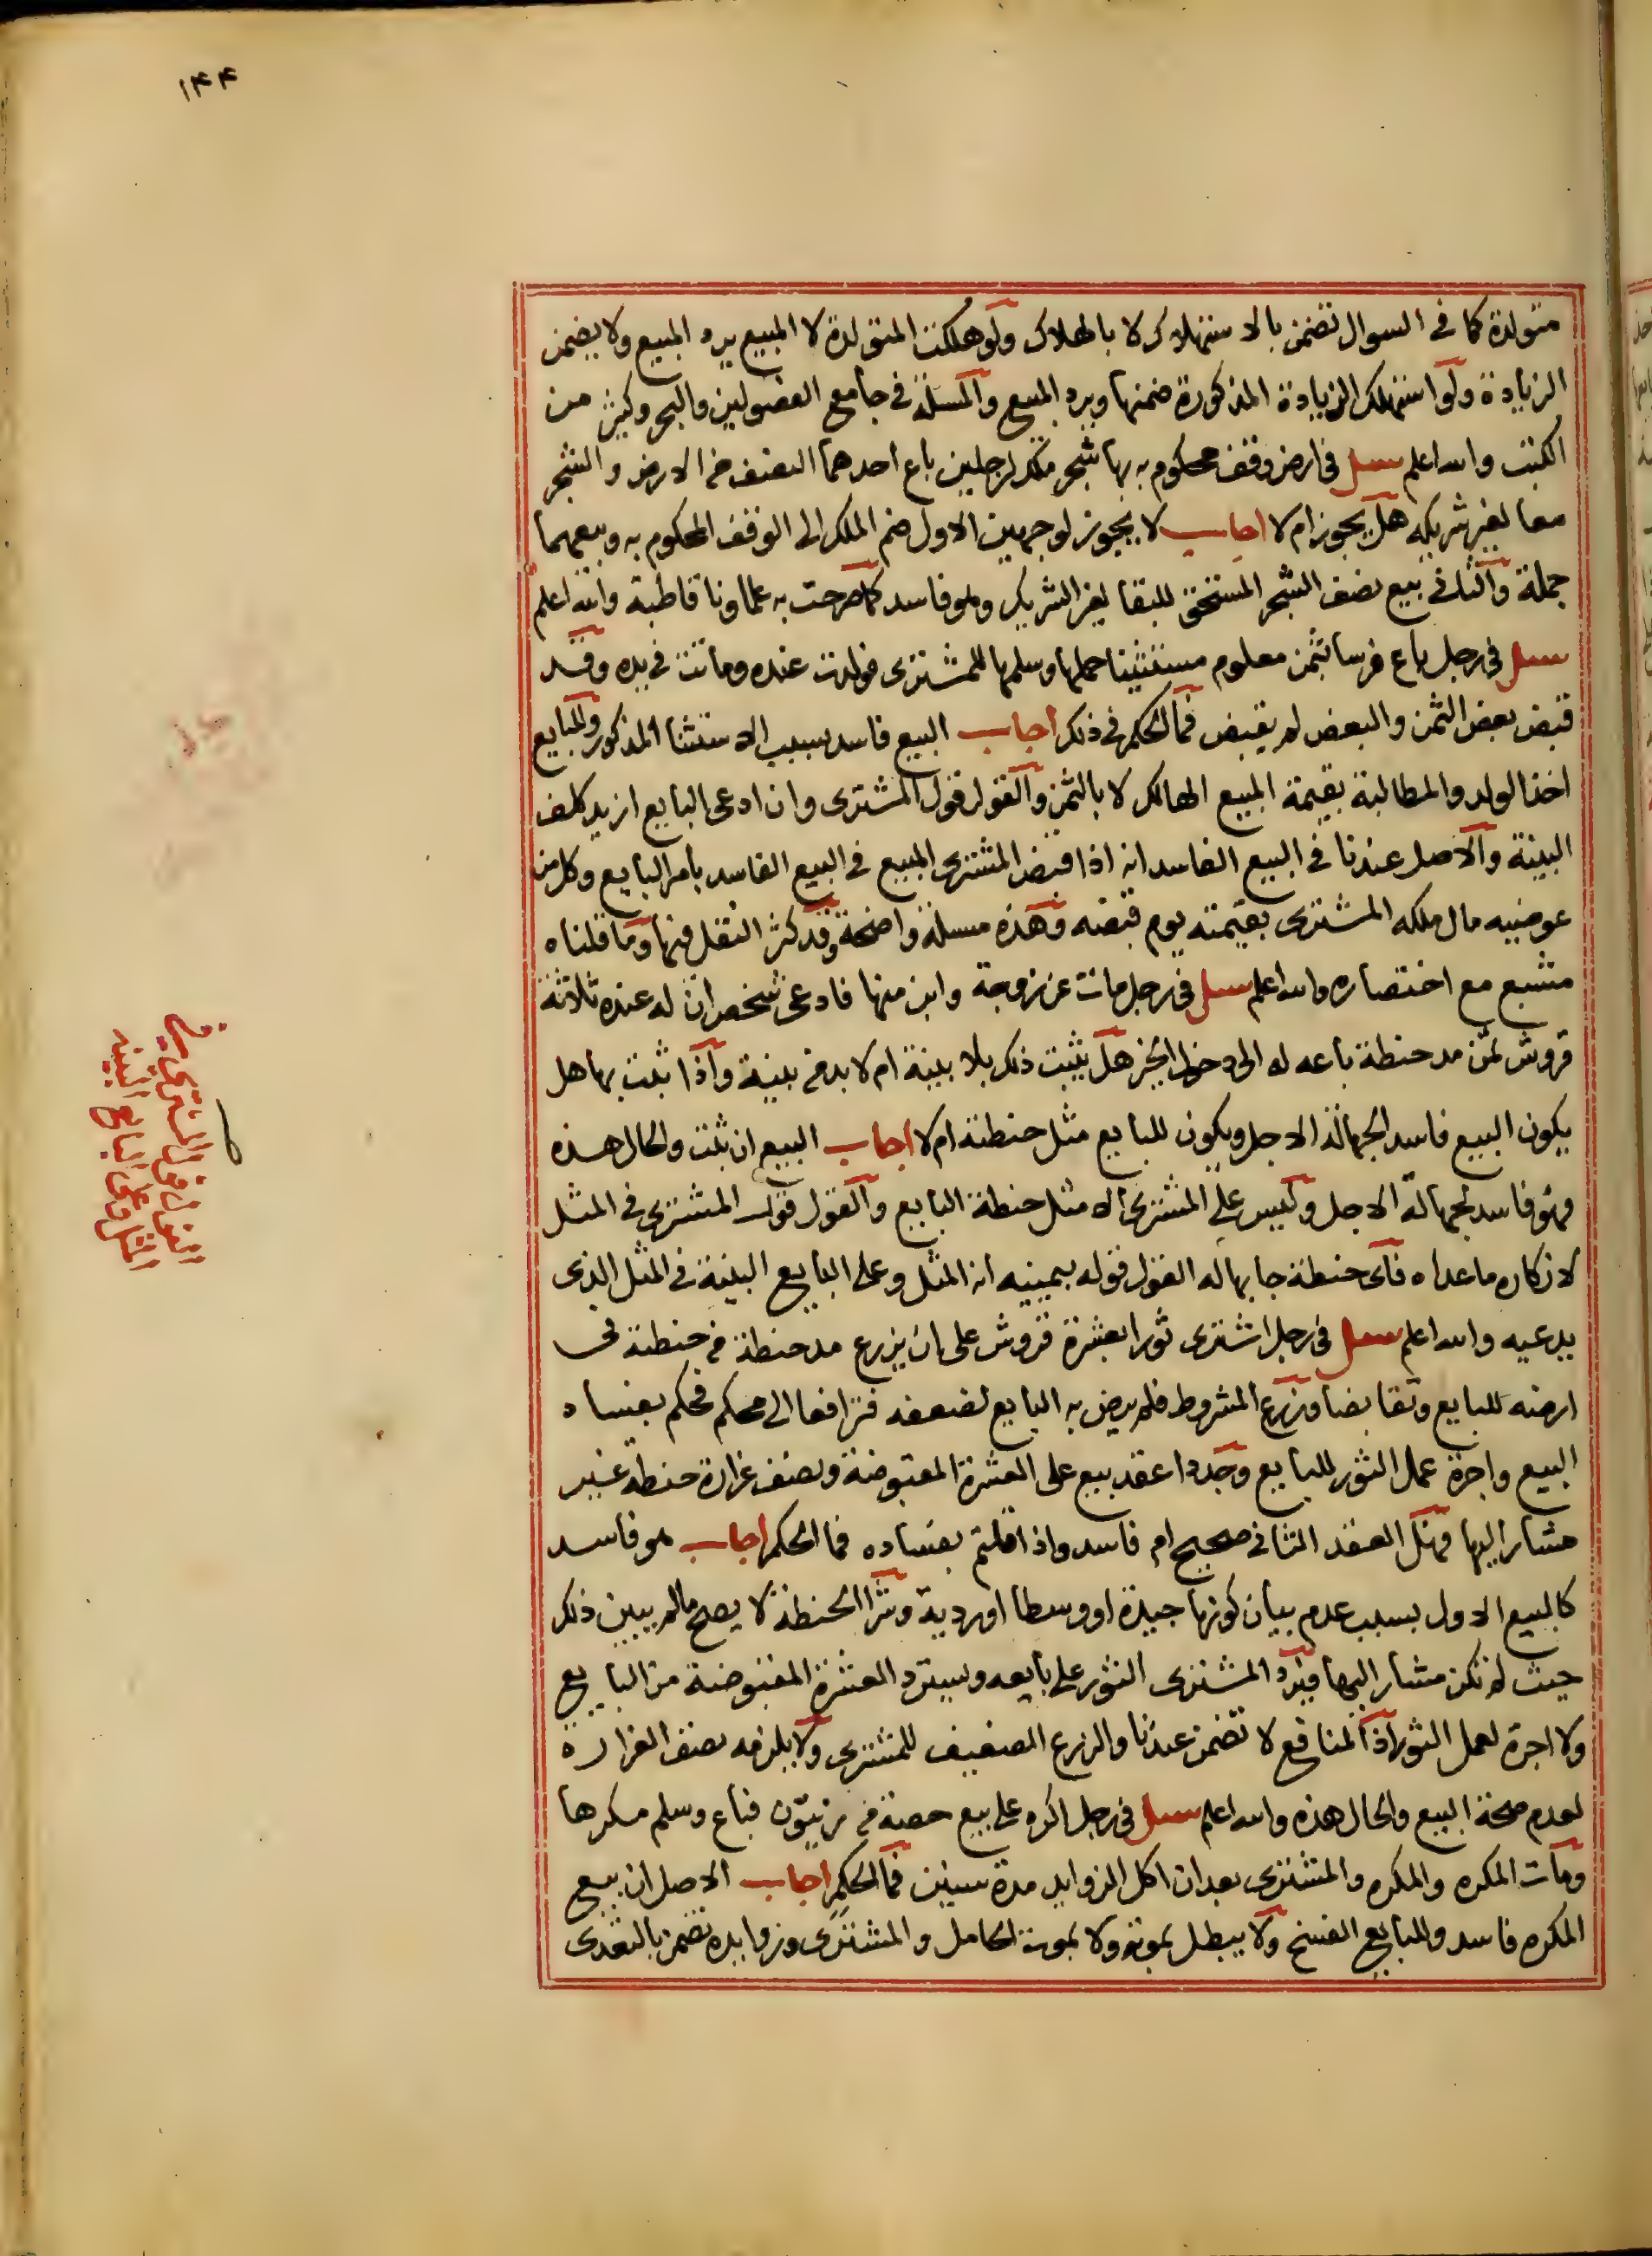 ١٤٤
متولدة كما في السوال تضمن بالاستهلاك لا بالهلاك ولو هلكت المتولدة لا المبيع يرد المبيع ولا يضمن
الزيادة ولو استهلك الزيادة المذكورة ضمنها ويرد المبيع والمسلة في جامع الفصولين والبحر وكثير من
الكتب والله اعلم سيل في ارض وقف محكوم به بها شجر ملك لرجلين باع احدهما النصف من الارض والشجر
معا لغير شريكه هل يجوز ام لا اجاب لا يجوز لوجهين الاول ضم الملك الى الوقف المحكوم به وبيعهما
جملة والثاني بيع نصف الشجر المستحق للبقا لغير الشريك وهو فاسد كما صرحت به علماونا قاطبة والله اعلم
سيل في رجل باع فرسا بثمن معلوم مستثنيا حملها وسلمها للمشتري فولدت عنده وماتت في يده وقد
قبض بعض الثمن والبعض لم يقبض فما الحكم في ذلك اجاب البيع فاسد بسبب الاستثنا المذكور وللبايع
اخذ الولد والمطالبة بقيمة المبيع الهالك لا بالثمن والقول قول المشتري وان ادعى البايع ازيد كلف
البينة والاصل عندنا في البيع الفاسد انه اذا قبض المشتري المبيع في البيع الفاسد بامر البايع وكل من
عوضيه مال ملكه المشتري بقيمته يوم قبضه وهذه مسلة واضحة وقد كثر النقل فيها وما قلناه
مشبع مع اختصاره والله اعلم سيل في رجل مات عن زوجة وابن منها فادعى شخص ان له عنده ثلاثة
قروش ثمن مد حنطة باعه له الى دخول الخبز هل يثبت ذلك بلا بينة ام لا بد من بينة واذا ثبت بها هل
يكون البيع فاسد الجهالة الاجل ويكون للبايع مثل حنطته ام لا اجاب البيع ان ثبت والحال هذه
فهو فاسد لجهالة الاجل وليس على المشتري الا مثل حنطة البايع والقول قول المشتري في المثل
لانكاره ما عداه فاي حنطة جا بها له القول قوله بيمينه انه المثل وعلى البايع البينة في المثل الذي
يدعيه والله اعلم سيل في رجل اشترى ثورا بعشرة قروش على ان يزرع مد حنطة من حنطته في
ارضه للبايع وتقابضا وزرع المشروط فلم يرض به البايع لضعفه فترافعا الى محكم فحكم بفساد
البيع واجرة عمل الثور للبايع وجددا عقد بيع على العشرة المقبوضة ونصف غرارة حنطة غير
مشار اليها فهل العقد الثاني صحيح ام فاسد واذا قلتم بفساده فما الحكم اجاب هو فاسد
كالبيع الاول بسبب عدم بيان كونها جيدة او وسطا او ردية وشرا الحنطة لا يصح ما لم يبين ذلك
حيث لم تكن مشار اليها فيرد المشتري الثور على بايعه ويسترد العشرة المقبوضة من البايع
ولا اجرة لعمل الثور اذ المنافع لا تضمن عندنا والزرع الضعيف للمشتري ولا يلزمه نصف الغرارة
لعدم صحة البيع والحال هذه والله اعلم سيل في رجل اكره على بيع حصة من زيتون فباع وسلم مكرها
ومات المكره والمكره والمشتري بعد ان اكل الزوايد مدة سنين فما الحكم اجاب الاصل ان بيع
المكره فاسد وللبايع الفسخ ولا يبطل بموته ولا بموت الحامل والمشتري وزوايده تضمن بالتعدي
القول قول المشتري في
المثل وعلى البايع البينه